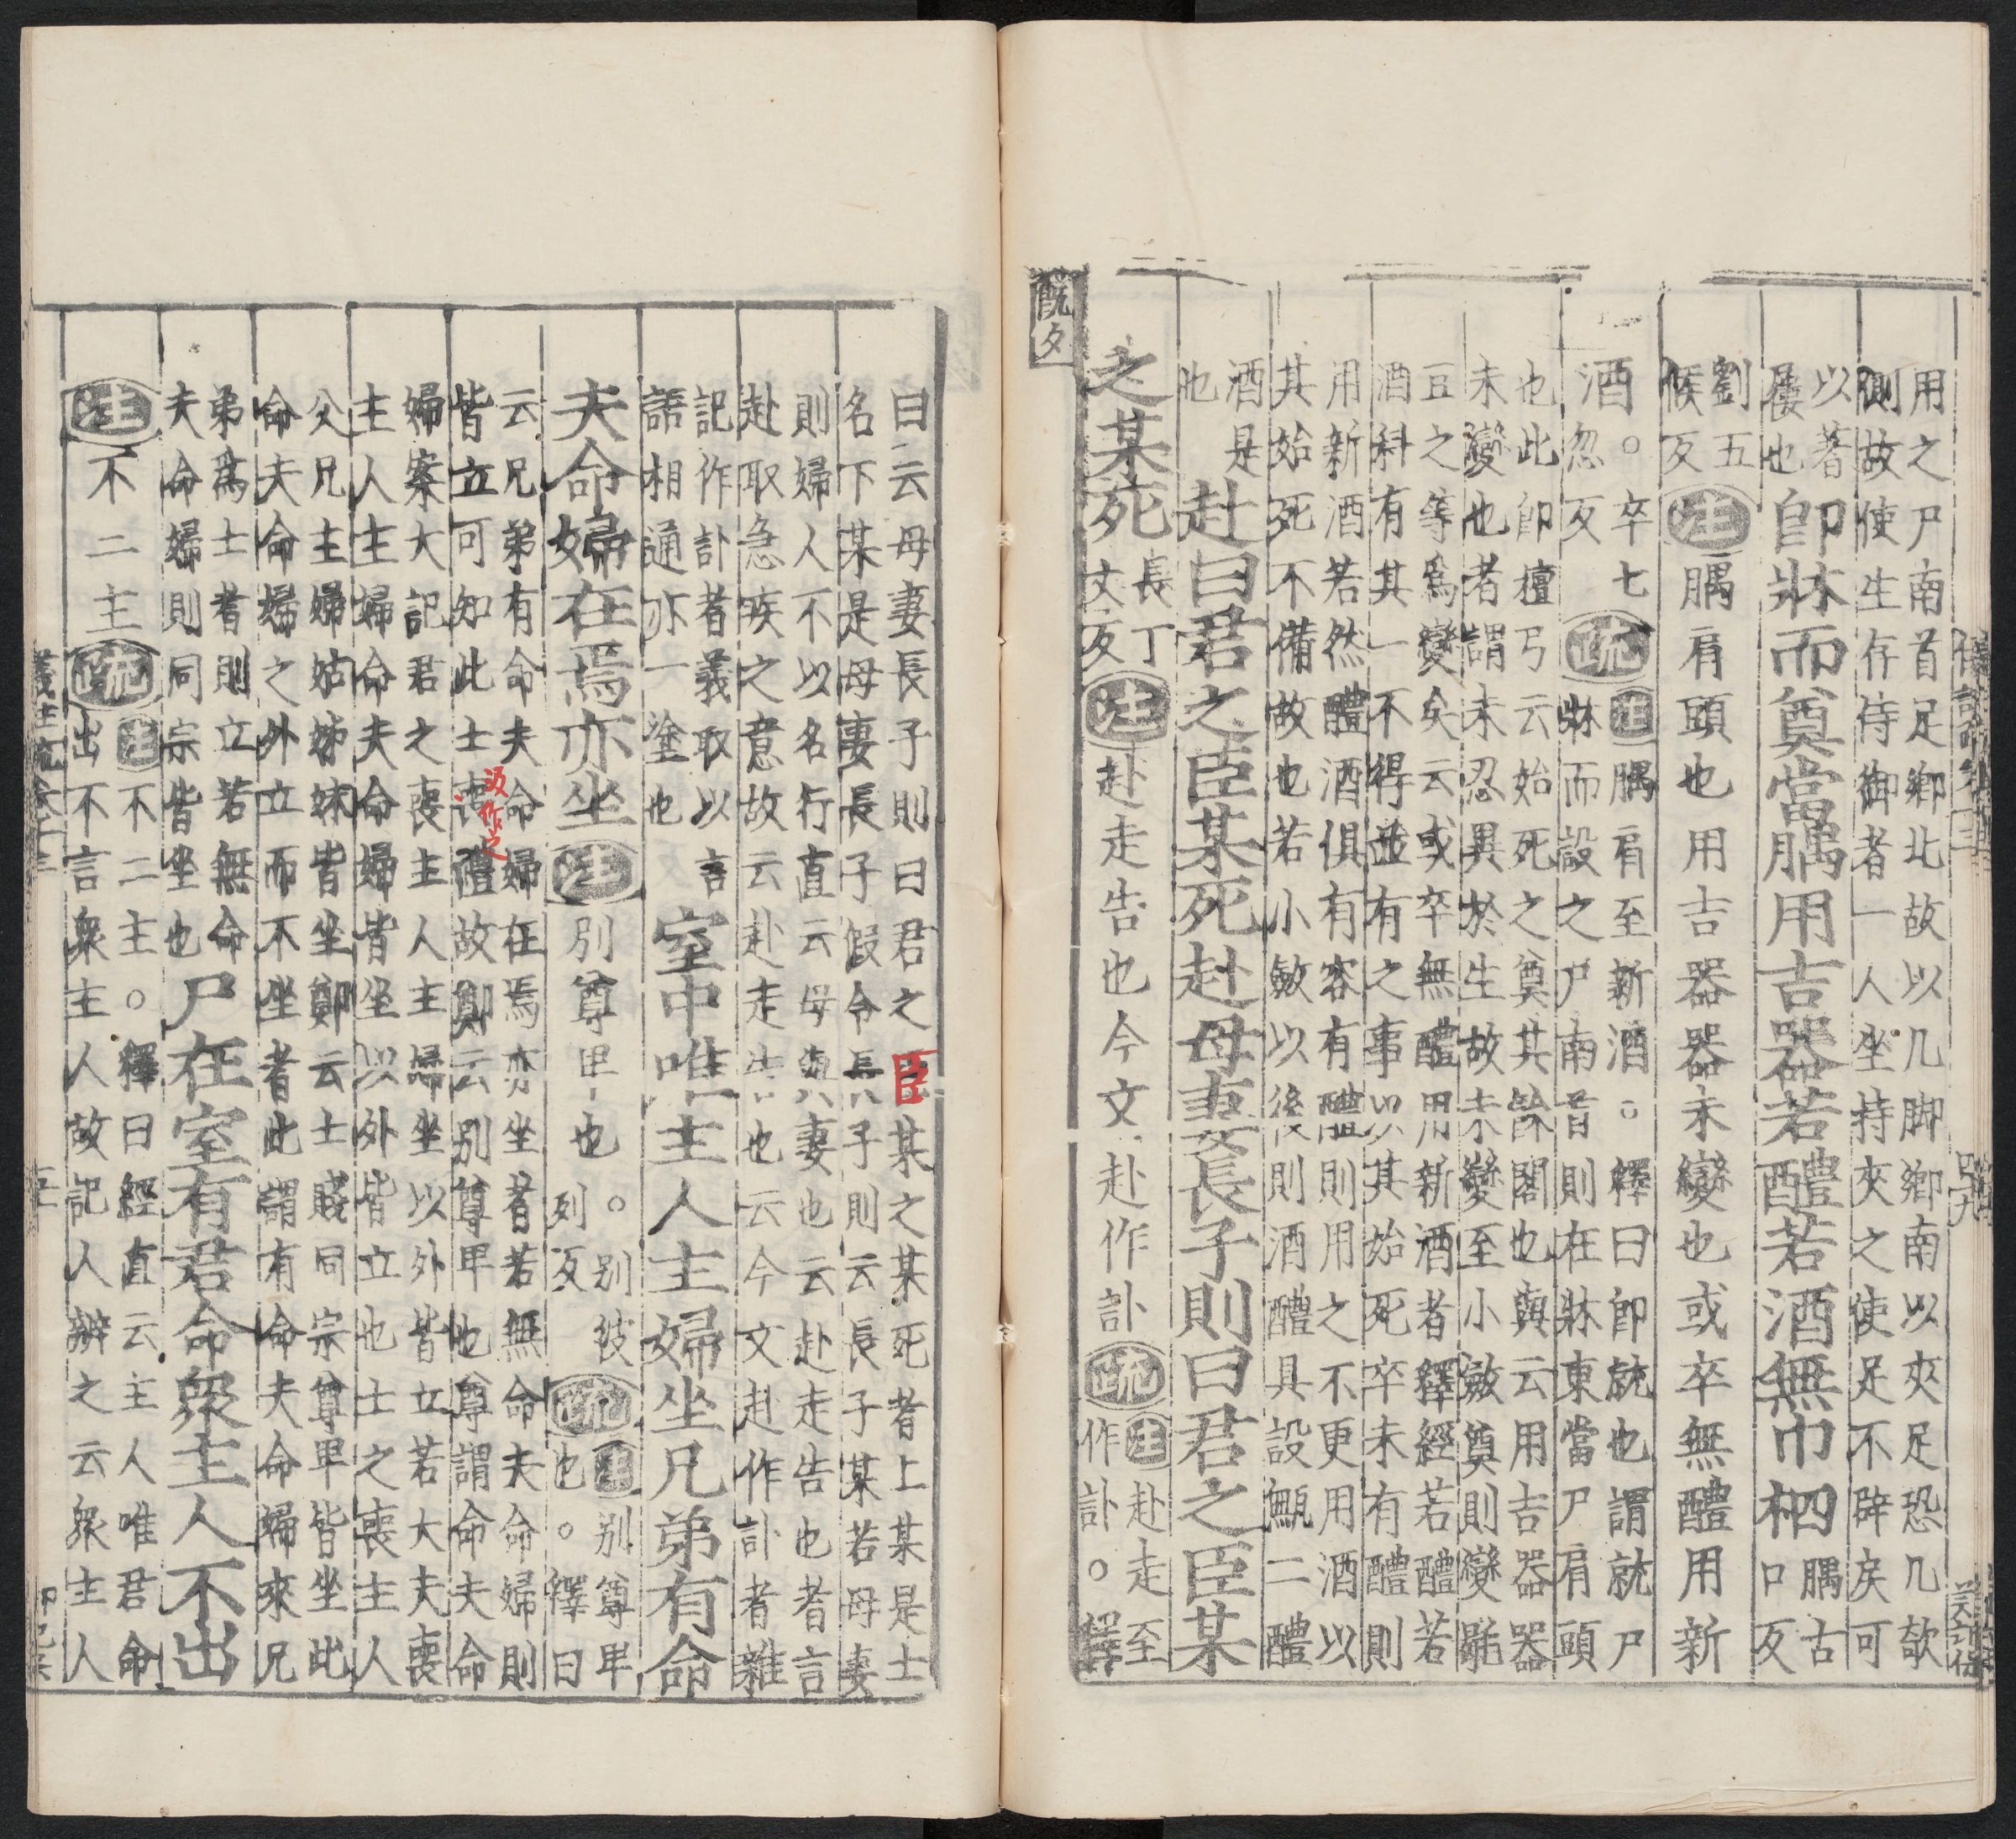 既夕
用之尸南首足鄉北故以几脚鄉南以夾足恐几欹
側故使生存侍御者一人坐持夾之使足不辟戾可
以著
屨也
即牀而奠當腢用吉器若醴若酒無巾柶
腢古
口反
劉五
候反
注
腢肩頭也用吉器器未變也或卒無醴用新
酒
。卒七
忽反
疏
注
腢肩至新酒。釋曰即就也謂就尸
牀而設之尸南首則在牀東當尸肩頭
也此即檀弓云始死之奠其餘閣也與云用吉器器
未變也者謂未忍異於生故未變至小斂奠則變毼
豆之等為變矣云或卒無醴用新酒者釋經若醴若
酒科有其一不得並有之事以其始死卒未有醴則
用新酒若然醴酒俱有容有醴則用之不更用酒以
其始死不備故也若小斂以後則酒醴具設甒二醴
酒是
也
赴曰君之臣某死赴母妻長子則曰君之臣某
之某死
長丁
丈反
注
赴走告也今文赴作訃
疏
注
赴走至
作訃。釋
曰云母妻長子則曰君之臣某之某死者上某是士
名下某是母妻長子假令長子則云長子某若母妻
則婦人不以名行直云母與妻也云赴走告也者言
赴取急疾之意故云赴走告也云今文赴作訃者雜
記作訃者義取以言
語相通亦一塗也
室中唯主人主婦坐兄弟有命
夫命婦在焉亦坐
注
別尊卑也
。別彼
列反
疏
注
別尊卑
也。釋曰
云兄弟有命夫命婦在焉亦坐者若無命夫命婦則
皆立可知此士喪禮故鄭云別尊卑也尊謂命夫命
汲作之
婦案大記君之喪主人主婦坐以外皆立若大夫喪
主人主婦命夫命婦皆坐以外皆立也士之喪主人
父兄主婦姑姊妹皆坐鄭云士賤同宗尊卑皆坐此
命夫命婦之外立而不坐者此謂有命夫命婦來兄
弟為士者則立若無命
夫命婦則同宗皆坐也
尸在室有君命衆主人不出
注
不二主
疏
注
不二主。釋曰經直云主人唯君命
出不言衆主人故記人辨之云衆主人